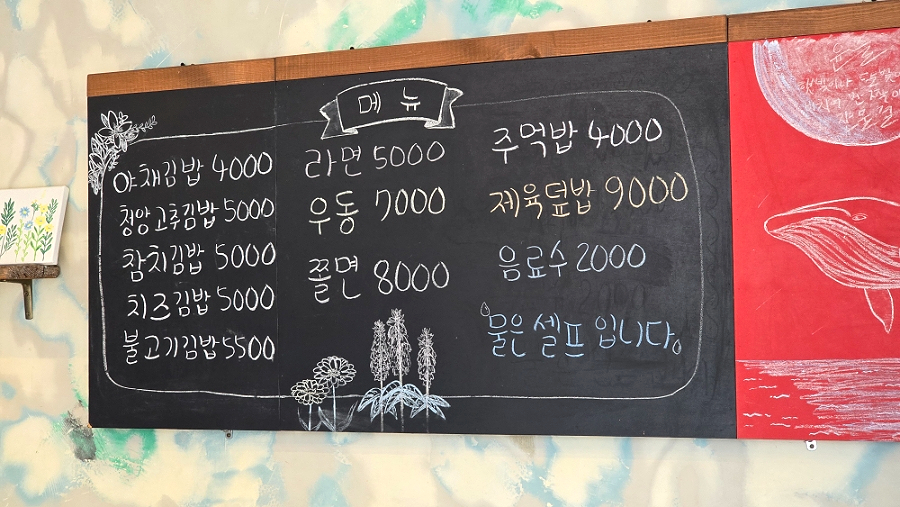 메뉴
야채김밥 4000
청양고추김밥 5000
참치김밥 5000
치즈김밥 5000
불고기김밥 5500
라면 5000
우동 7000
쫄면 8000
주먹밥 4000
제육덮밥 9000
음료수 2000
물은 셀프 입니다.
윤슬